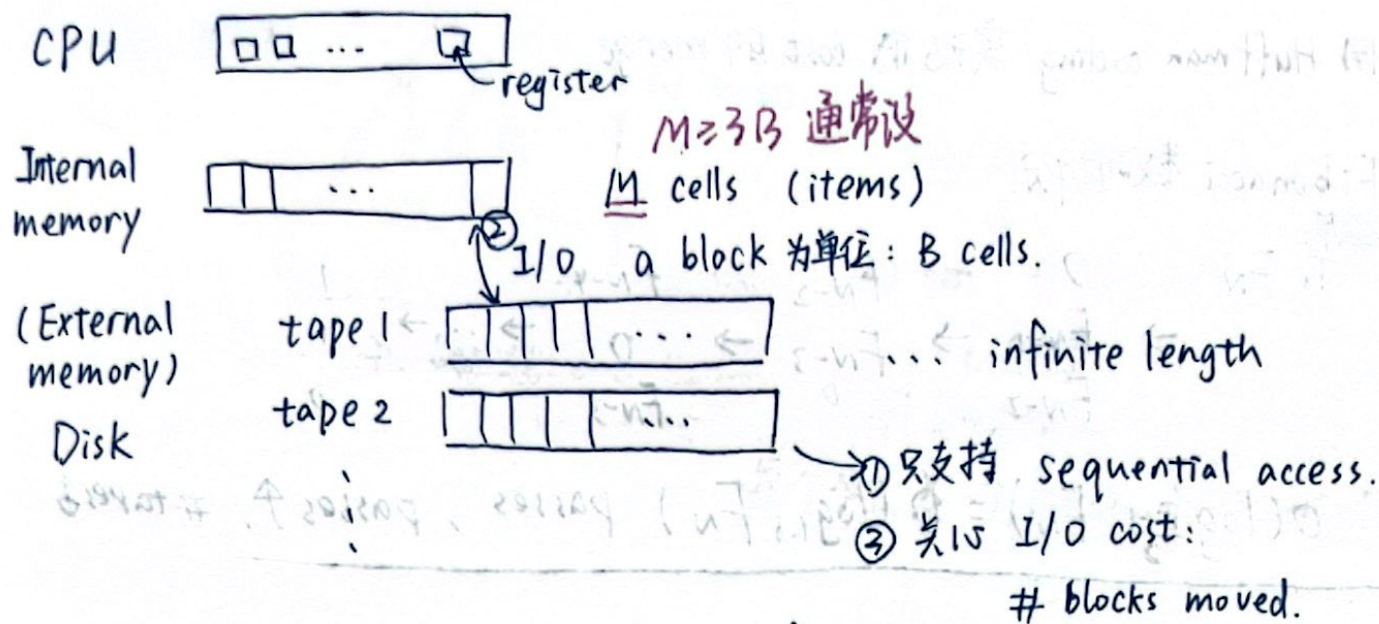 CPU ...
register
M≥3B 通常设
Internal memory ...
M cells (items)
② I/O a block 为单位: B cells.
(External memory) Disk
tape 1 ... ... infinite length
tape 2 ...
① 只支持 sequential access.
③ 关心 I/O cost:
# blocks moved.